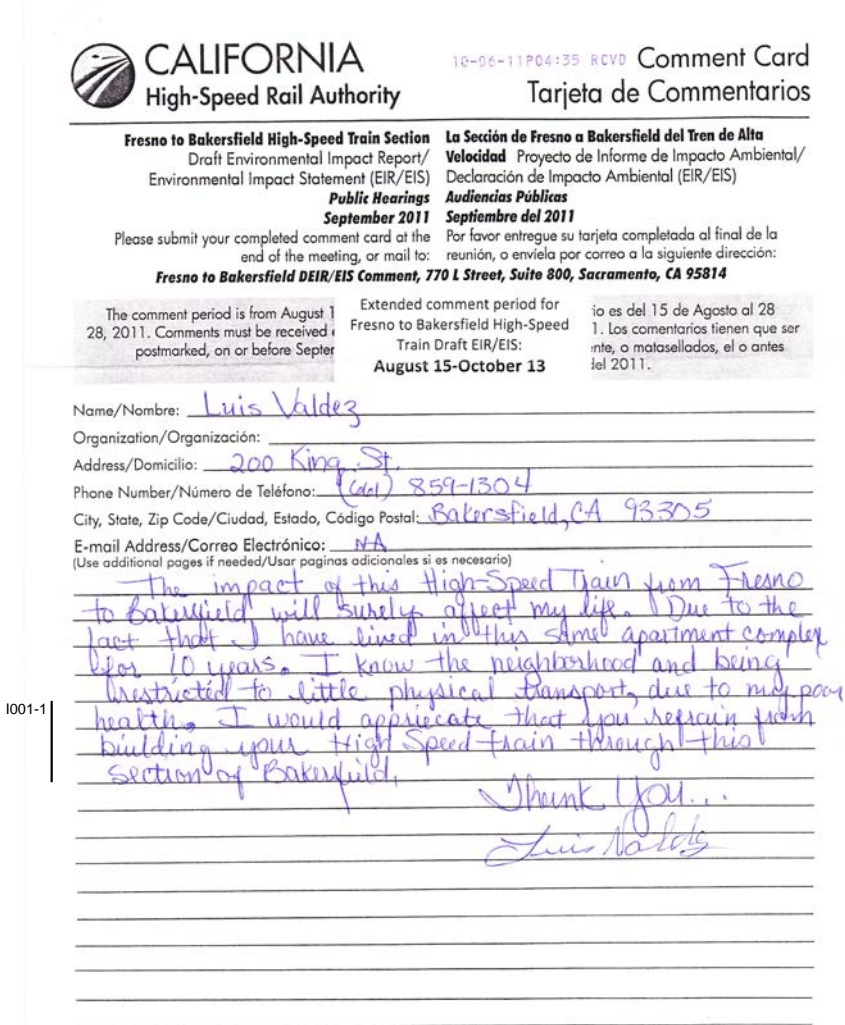 CALIFORNIA
High-Speed Rail Authority
10-06-11P04:35 RCVD Comment Card
Tarjeta de Commentarios
Fresno to Bakersfield High-Speed Train Section
Draft Environmental Impact Report/
Environmental Impact Statement (EIR/EIS)
Public Hearings
September 2011
Please submit your completed comment card at the
end of the meeting, or mail to:
La Sección de Fresno a Bakersfield del Tren de Alta
Velocidad Proyecto de Informe de Impacto Ambiental/
Declaración de Impacto Ambiental (EIR/EIS)
Audiencias Públicas
Septiembre del 2011
Por favor entregue su tarjeta completada al final de la
reunión, o envíela por correo a la siguiente dirección:
Fresno to Bakersfield DEIR/EIS Comment, 770 L Street, Suite 800, Sacramento, CA 95814
The comment period is from August 1
28, 2011. Comments must be received
postmarked, on or before Septer
Extended comment period for
Fresno to Bakersfield High-Speed
Train Draft EIR/EIS:
August 15-October 13
io es del 15 de Agosto al 28
1. Los comentarios tienen que ser
nte, o matasellados, el o antes
del 2011.
Name/Nombre: Luis Valdez
Organization/Organización:
Address/Domicilio: 200 King St.
Phone Number/Número de Teléfono: (661) 859-1304
City, State, Zip Code/Ciudad, Estado, Código Postal: Bakersfield, CA 93305
E-mail Address/Correo Electrónico: NA
(Use additional pages if needed/Usar paginas adicionales si es necesario)
The impact of this High-Speed Train from Fresno
to Bakersfield will surely affect my life. Due to the
fact that I have lived in this same apartment complex
for 10 years. I know the neighborhood and being
restricted to little physical transport, due to my poor
health. I would appriecate that you refrain from
building your High Speed train through this
section of Bakersfield.
Thank You...
Luis Valdez
I001-1